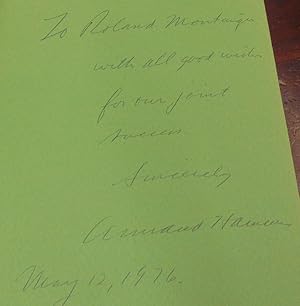 To Roland Montaigu
with all good wishes
for our joint
success
Sincerely
Armand Hammer
May 12, 1976.